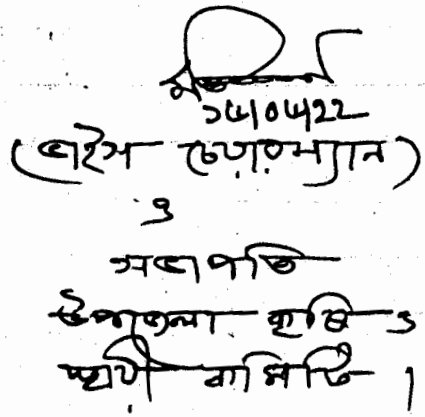 (ভাইস চেয়ারম্যান)
ও
সভাপতি
উপজেলা কৃষি ও
স্থায়ী কমিটি ।